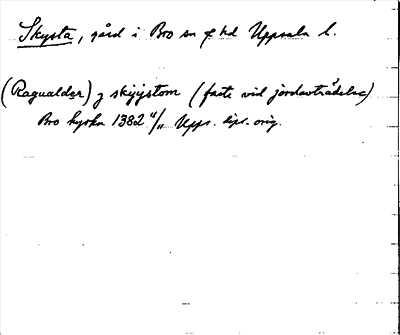 Skysta, gård i Bro sn & hd Uppsala l.
(Ragualder) ȝ skyijstom (faste vid jordavträdelse)
Bro kyrka 1382 4/11 Upps. dipl. orig.